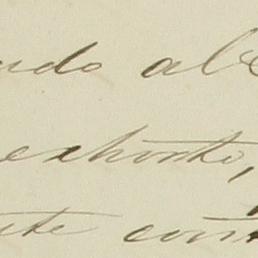 ndo al
exhorto,
te con